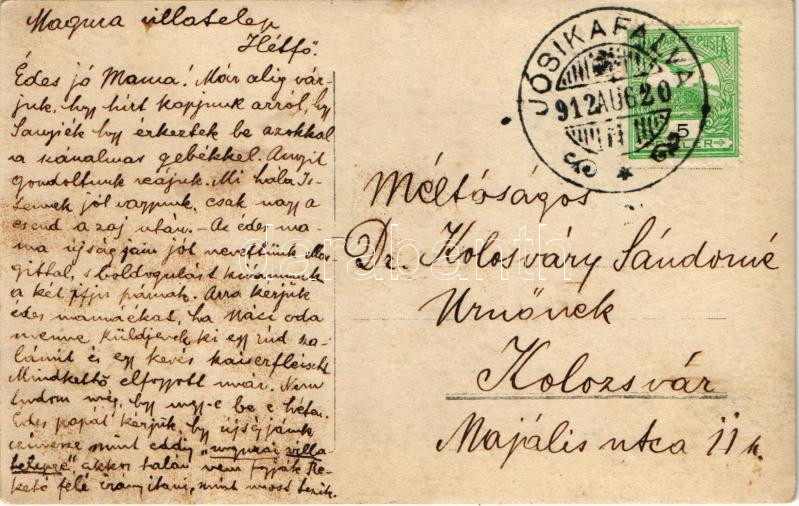 Magura villatelep
Hétfő.
Édes jó Mama! Már alig vár-
juk, hogy hírt kapjunk arról, hogy
érkeztek be azokkal
a szánalmas gebékkel. Annyit
gondoltunk reájuk. Mi hála Is-
tennek jól vagyunk, csak nagy a
csend a zaj után. - Az édes ma-
ma ujságjain jól nevettünk Mar-
gittal, s boldogulást kivánunk
a két ifju párnak. Arra kérjük
édes mamáékat, ha Náci oda
menne, küldjenek ki egy rúd sza-
lámit és egy kevés kaiserfleischt
Mindkettő elfogyott már. Nem
tudom még, hogy megy-e be e héten.
Édes papát kérjük, hogy ujságjaink
címezze mint eddig „magurai villa
telepre", akkor talán nem fogják Re-
kető felé irányitani, mint most teszik.
JÓSIKAFALVA
912 AUG 20
MAGYAR KIR. POSTA
5
Méltóságos
Dr. Kolosváry Sándorné
Urnőnek
Kolozsvár
Majális utca 11
darabanth